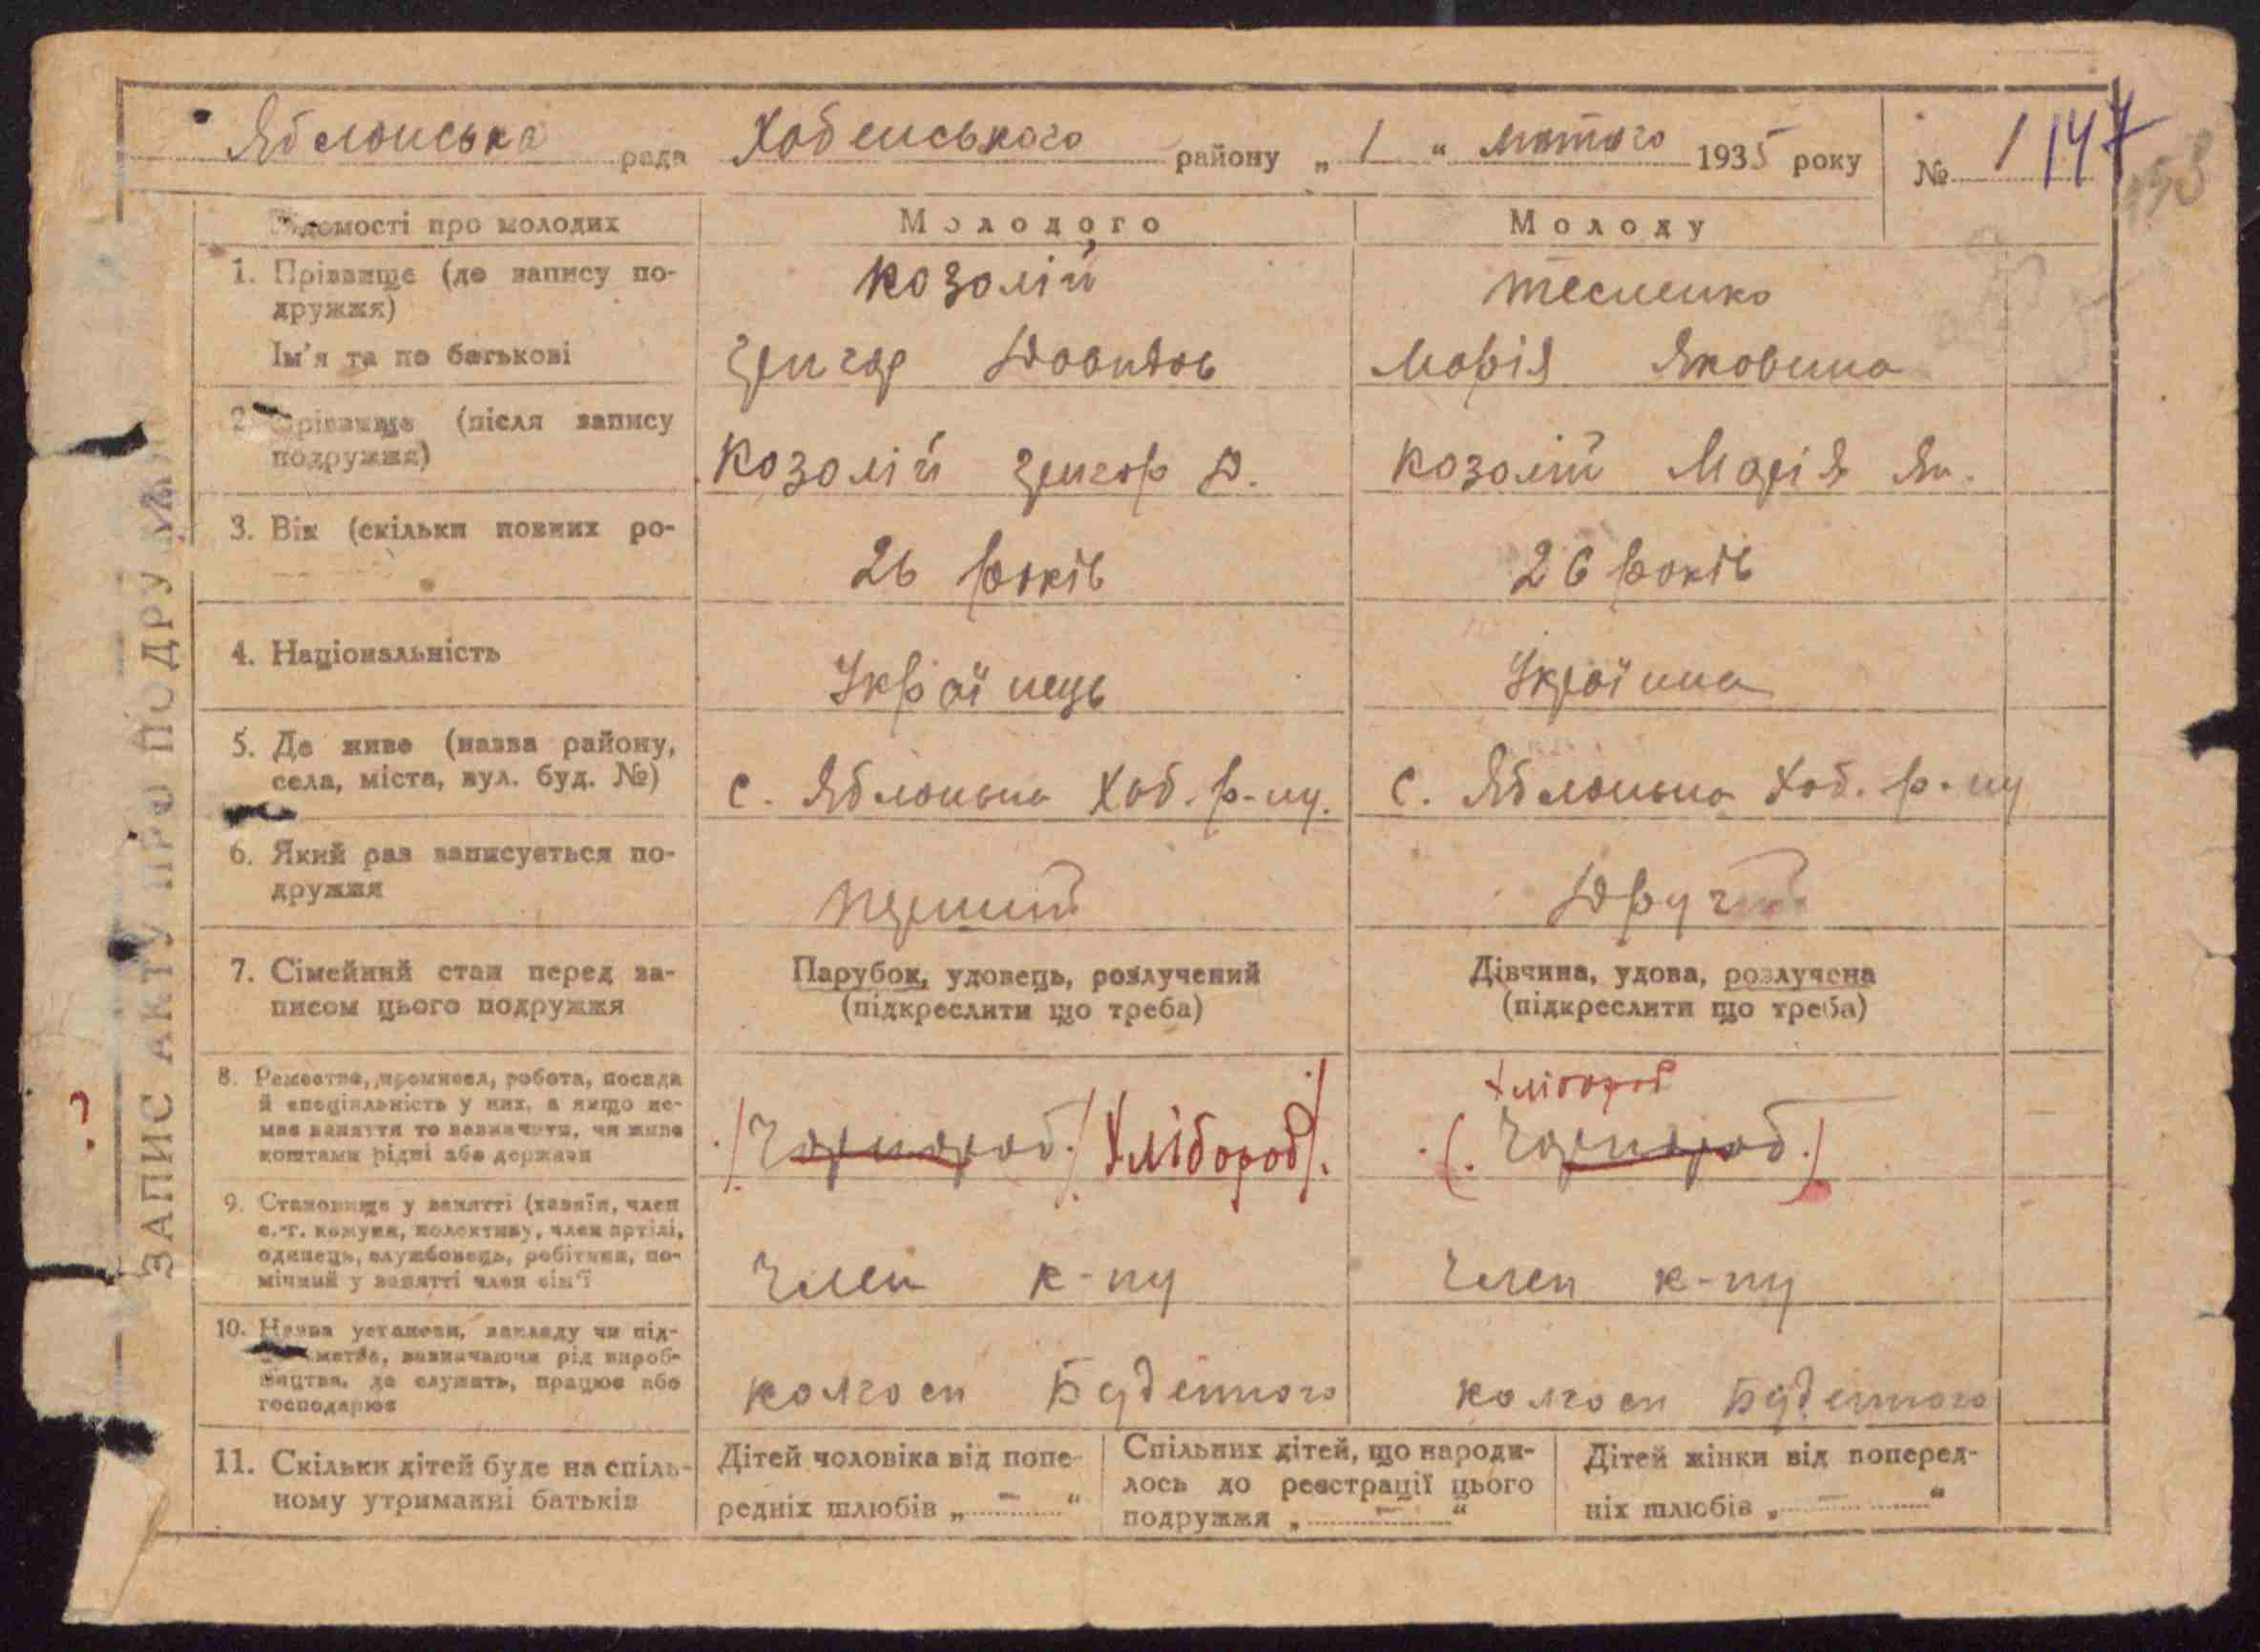 Яблонська рада Хабенського району „ 1 “ лютого 1935 року № 1 147
153
ЗАПИС АКТУ ПРО ПОДРУ
Відомості про молодих Молодого Молоду
1. Прізвище (до запису по-
дружжя) Козолій Тесленко
Ім'я та по батькові Григор Давидов Марія Яковина
2. Прізвище (після запису
подружжя) Козолій Григор Д. Козолій Марія Як.
3. Вік (скільки повних ро-
26 років 26 років
4. Національність Українець Українка
5. Де живе (назва району,
села, міста, вул. буд. №) с. Яблонька Хаб. р-ну. с. Яблонька Хаб. р-ну
6. Який раз записується по-
дружжя перший Другий
7. Сімейний стан перед за-
писом цього подружжя
Парубок, удовець, розлучений
(підкреслити що треба)
Дівчина, удова, розлучена
(підкреслити що треба)
8. Ремество, промисел, робота, посада
й спеціяльність у них, а якщо не-
має заняття то зазначити, чи живе
коштами рідні або держави
Чорнороб. Хлібороб
Хлібороб
Чорнороб.
?
9. Становище у занятті (хазяїн, член
с.-г. комуни, колективу, член артілі,
одинець, службовець, робітник, по-
мічний у занятті член сім'ї
Член к-пу Член к-пу
10. Назва установи, закладу чи під-
приємства, зазначаючи рід вироб-
ництва, де служить, працює або
господарює
колгосп Будённого колгосп Будённого
11. Скільки дітей буде на спіль-
ному утриманні батьків
Дітей чоловіка від попе-
редніх шлюбів „ — “
Спільних дітей, що народи-
лось до реєстрації цього
подружжя „ — “
Дітей жінки від поперед-
ніх шлюбів „ — “